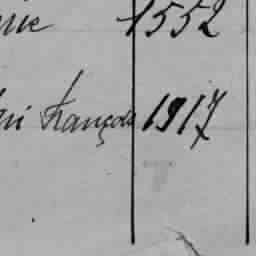 1552
François 1917